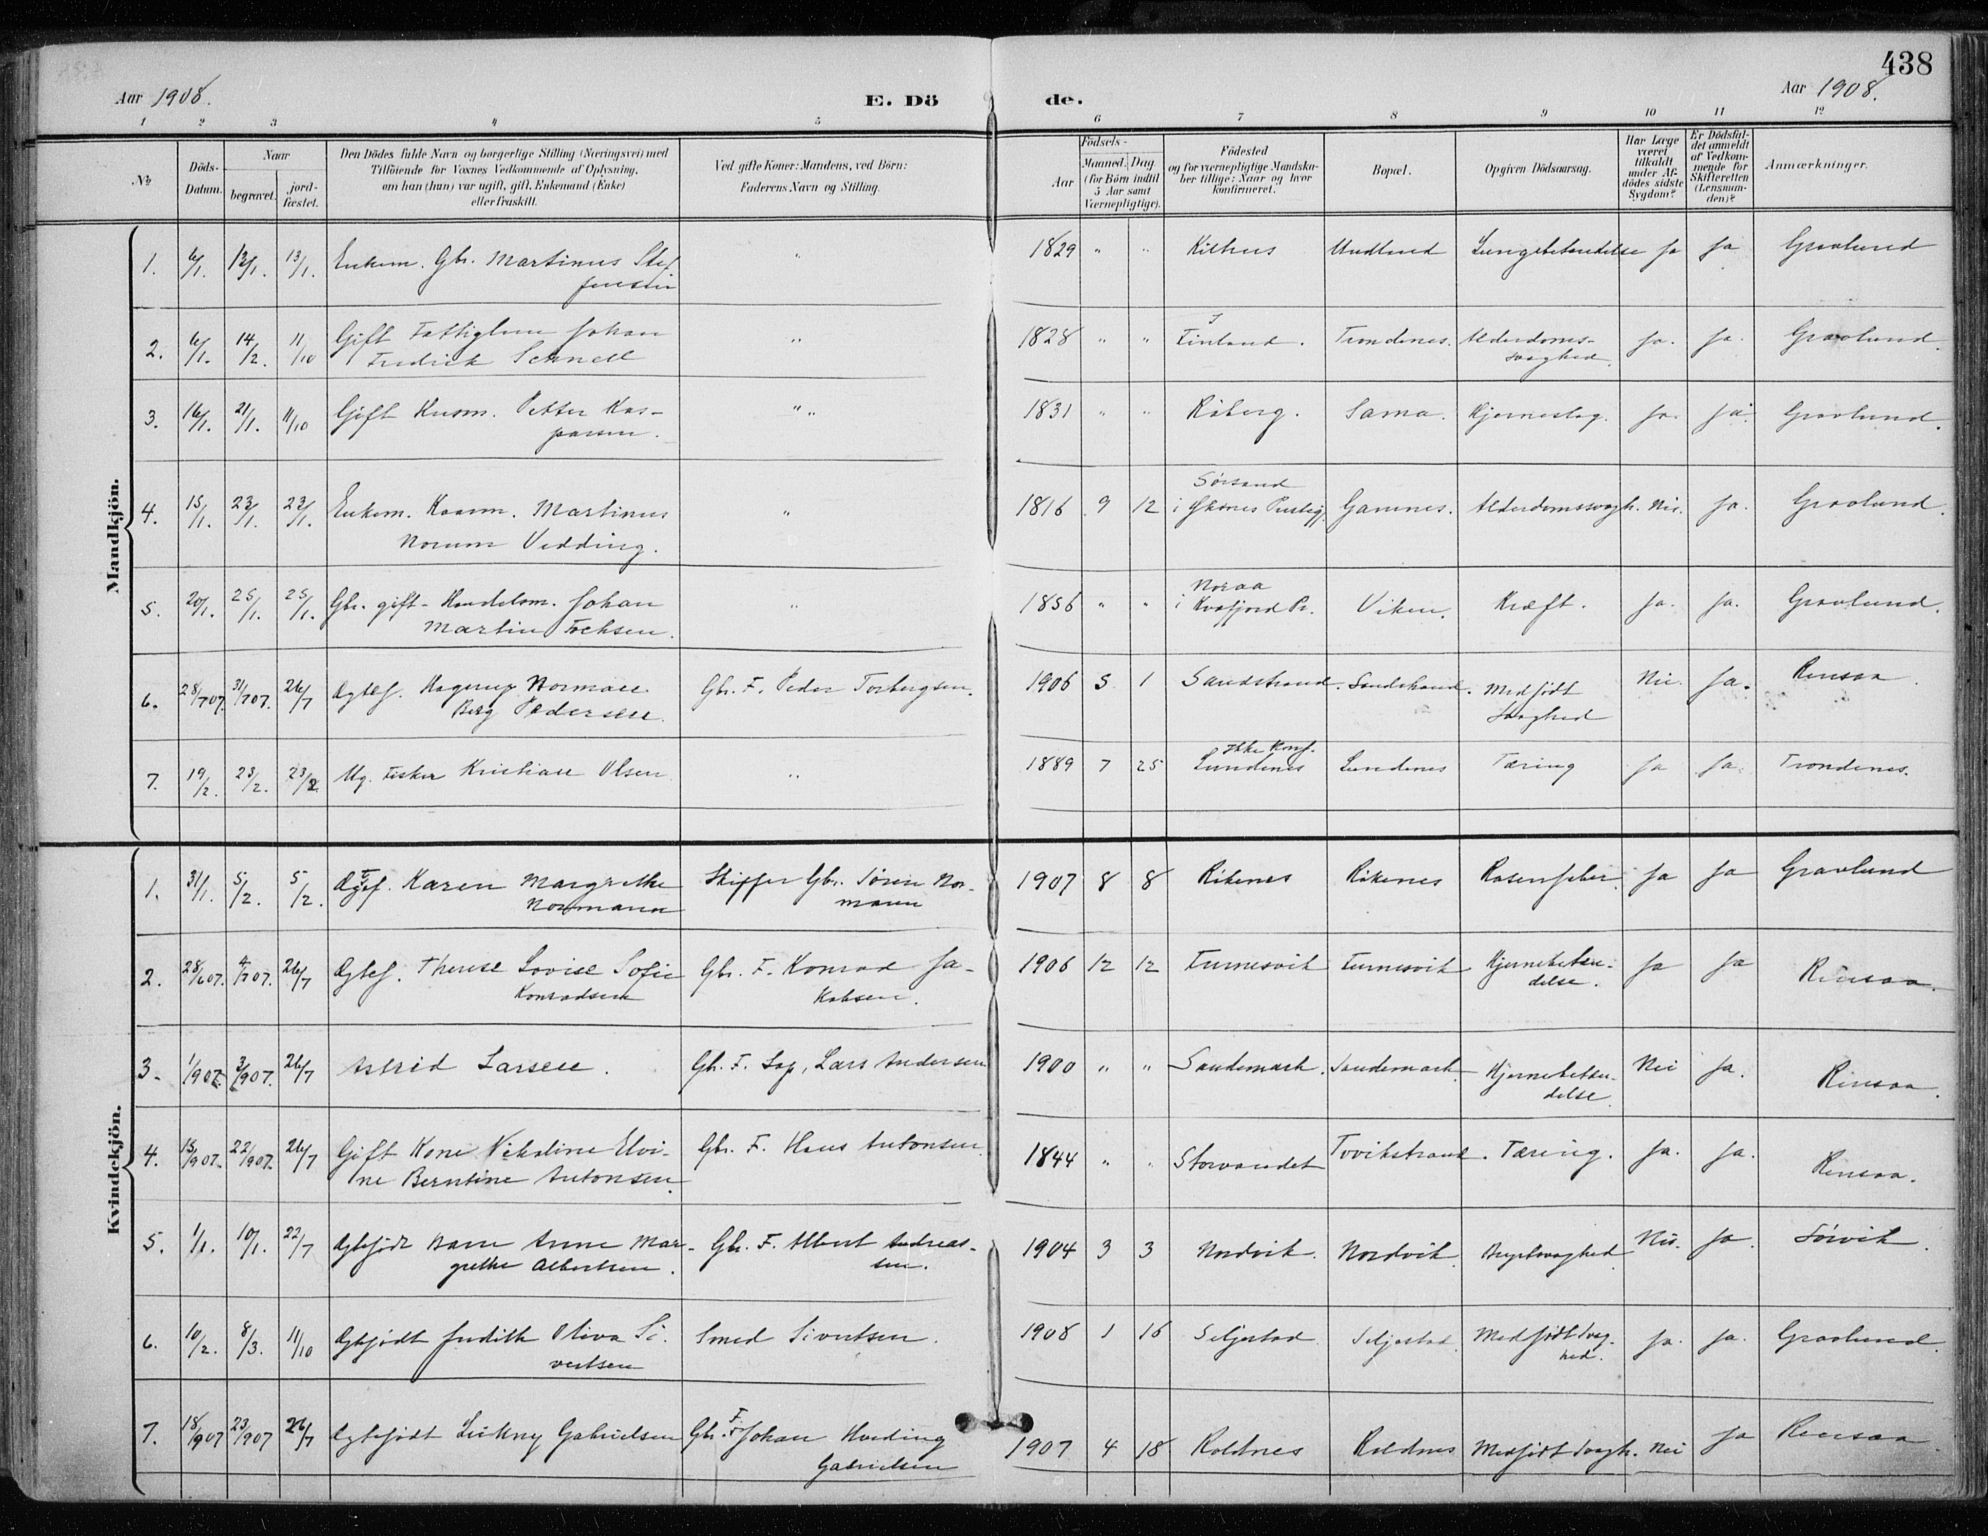 438
Aar 1908.
E. Dö
de.
Aar 1908.
1 2 3 4 5 6 7 8 9 10 11 12
No.
Döds-
Datum.
Naar
begravet.
jord-
fæstet.
Den Dödes fulde Navn og borgerlige Stilling (Næringsvei) med
Tilföiende for Voxnes Vedkommende af Oplysning,
om han (hun) var ugift, gift, Enkemand (Enke)
eller fraskilt.
Ved gifte Koner: Mandens, ved Börn:
Faderens Navn og Stilling.
Födsels-
Aar
Maaned. Dag
(for Börn indtil
5 Aar samt
Værnepligtige).
Födested
og for værnepligtige Mandska-
ber tillige: Naar og hvor
konfirmeret.
Bopæl.
Opgiven Dödsaarsag.
Har Læge
været
tilkaldt
under Af-
dödes sidste
Sygdom?
Er Dödsfal-
det anmeldt
af Vedkom-
mende for
Skifteretten
(Lensman-
den)?
Anmærkninger.
Mandkjön.
1. 6/1. 12/1. 13/1. Enkem. Gbr. Martinus Stef
fensen " 1829 " " Kilhus Undlund Lungebetændelse Ja Ja Gravlund
2. 6/1. 14/2. 11/10 Gift Fattiglem Johan
Fredrik Schnell " 1828 " " I
Finland. Trondenes. Alderdoms-
svaghed. Ja. Ja. Gravlund.
3. 16/1. 21/1. 11/10 Gift Kusm. Petter Kas-
parsen. " " 1831 " " Röberg. Sama. Hjerneslag. Ja. Ja. Gravlund.
4. 15/1. 23/1. 23/1. Enkem. Kaarm. Martinus
Norum Vedding. " 1816 9 12 Sörsand
i Præstegj. Gamnes. Alderdomssvagh. Nei. Ja. Gravlund.
5. 20/1. 25/1. 25/1. Gbr. gift- Handelsm. Johan
Martin Fochsen. " 1856 " " Noraa
i Kvæfjord Pr. Viken. Kræft. Ja. Ja. Gravlund.
6. 28/707. 31/707. 26/7 Ægtef. Hagerup Normann
Berg Pedersen. Gbr. F. Peder Torbergsen. 1906 5 1 Sandstrand. Sandstrand. Medfödt
Svaghed Nei. Ja. Rensaa.
7. 19/2. 23/2. 23/2. Ug. Fisker Kristian Olsen. " 1889 7 25 Ikke Konf.
Lundenes Lundenes Tæring Ja Ja. Trondenes.
Kvindekjön.
1. 31/1. 5/2. 5/2. Ægtef. Karen Margrethe
Normann Skipper Gbr. Sören Nor-
mann 1907 8 8 Rikenes Rikenes Rosenfeber. Ja Ja Gravlund
2. 28/607. 4/707. 26/7 Ægtef. Therese Lovise Sofie
Konradsen Gbr. F. Konrad Ja-
kobsen. 1906 12 12 Furnesvik Furnesvik Hjernebetæn-
delse. Ja Ja Rensaa.
3. 1/907. 3/907. 26/7 Astrid Larsen. Gbr. F. Lap, Lars Andersen 1900 " " Sandemark. Sandemark. Hjernebetæn-
delse. Nei Ja. Rensaa.
4. 15/907. 22/907. 26/7 Gift Kone Nikoline Elvi-
ne Berntine Antonsen. Gbr. F. Hans Antonsen. 1844 " " Storvandet Tovikstrand. Tæring. Ja. Ja. Rensaa.
5. 1/1. 10/1. 22/7 Ægtefödt Barn Anne Mar-
grethe Albertsen. Gbr. F. Albert Andreas-
sen. 1904 3 3 Nordvik. Nordvik. Brystsvaghed. Nei. Ja. Sörvik.
6. 10/2. 8/3. 11/10 Ægtefödt Judith Oliva Si-
vertsen Smed Sivertsen. 1908 1 16 Seljestad Seljestad. Medfödt Svag-
hed. Ja. Ja. Gravlund.
7. 18/907 23/907 26/7 Ægtefödt Gabrielsen Gbr. F. Johan Hveding
Gabrielsen 1907 4 18 Roldnes Roldnes Medfödt Svagh. Nei Ja Rensaa.